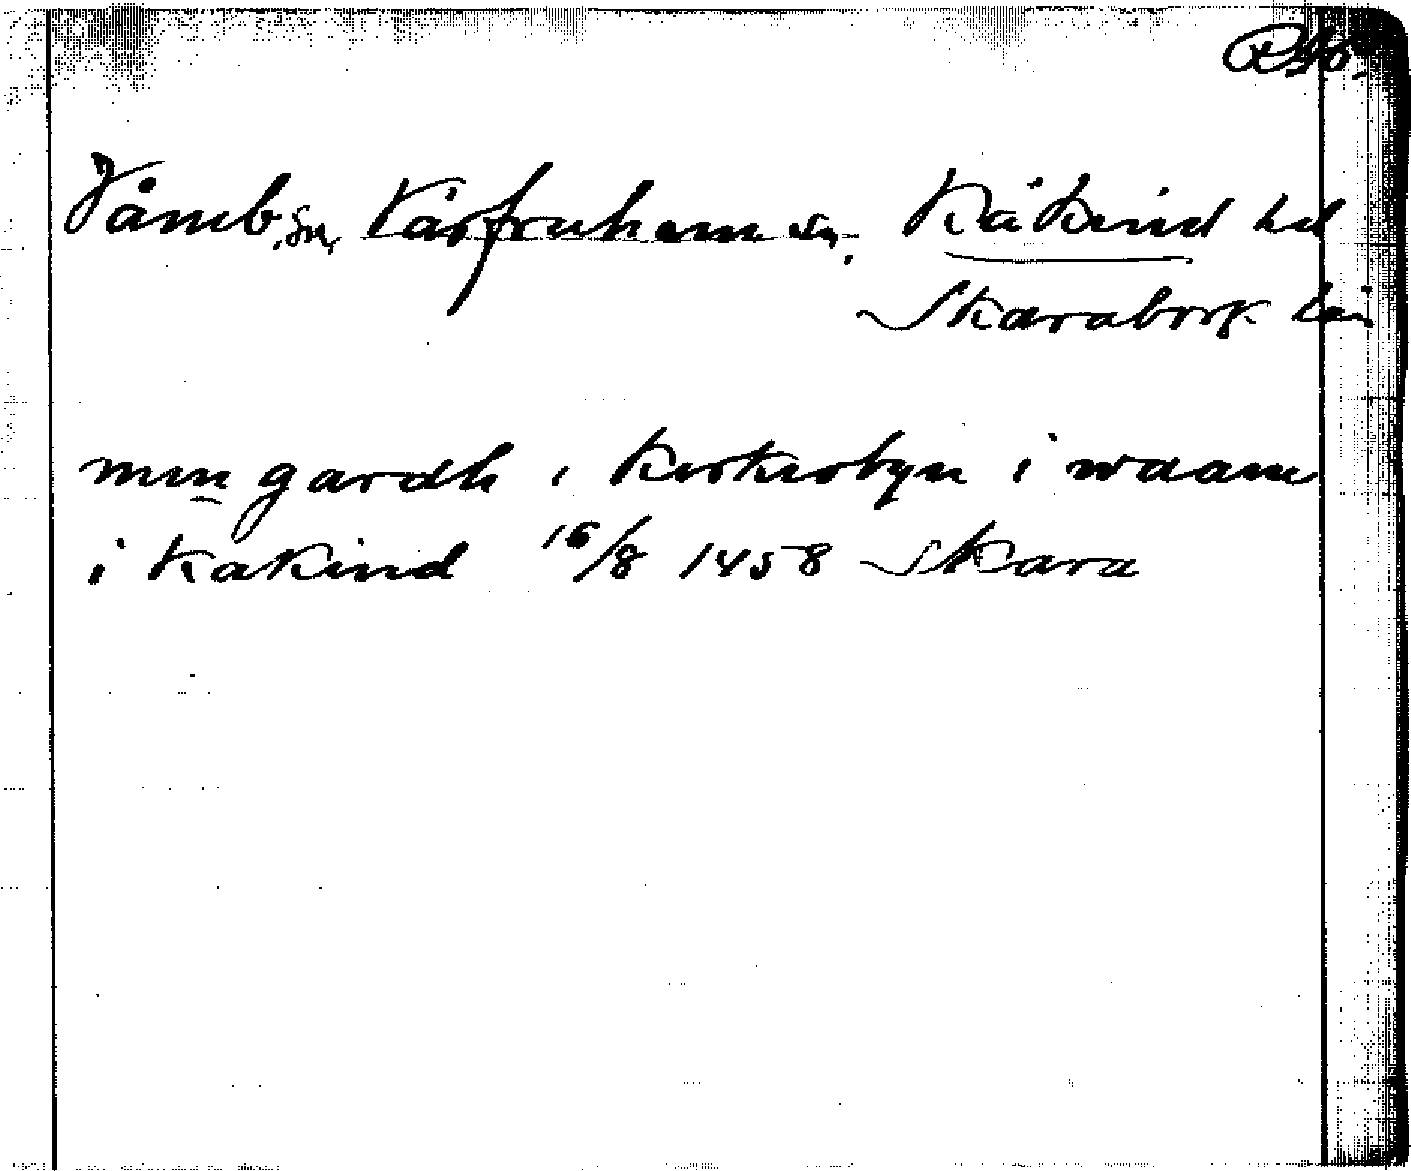 Våmb sn, Vårfruhem sn. Kåkind hd
Skaraborg län
min gardh i kirkiobyn i waam
i Kakind 16/8 1458 Skara